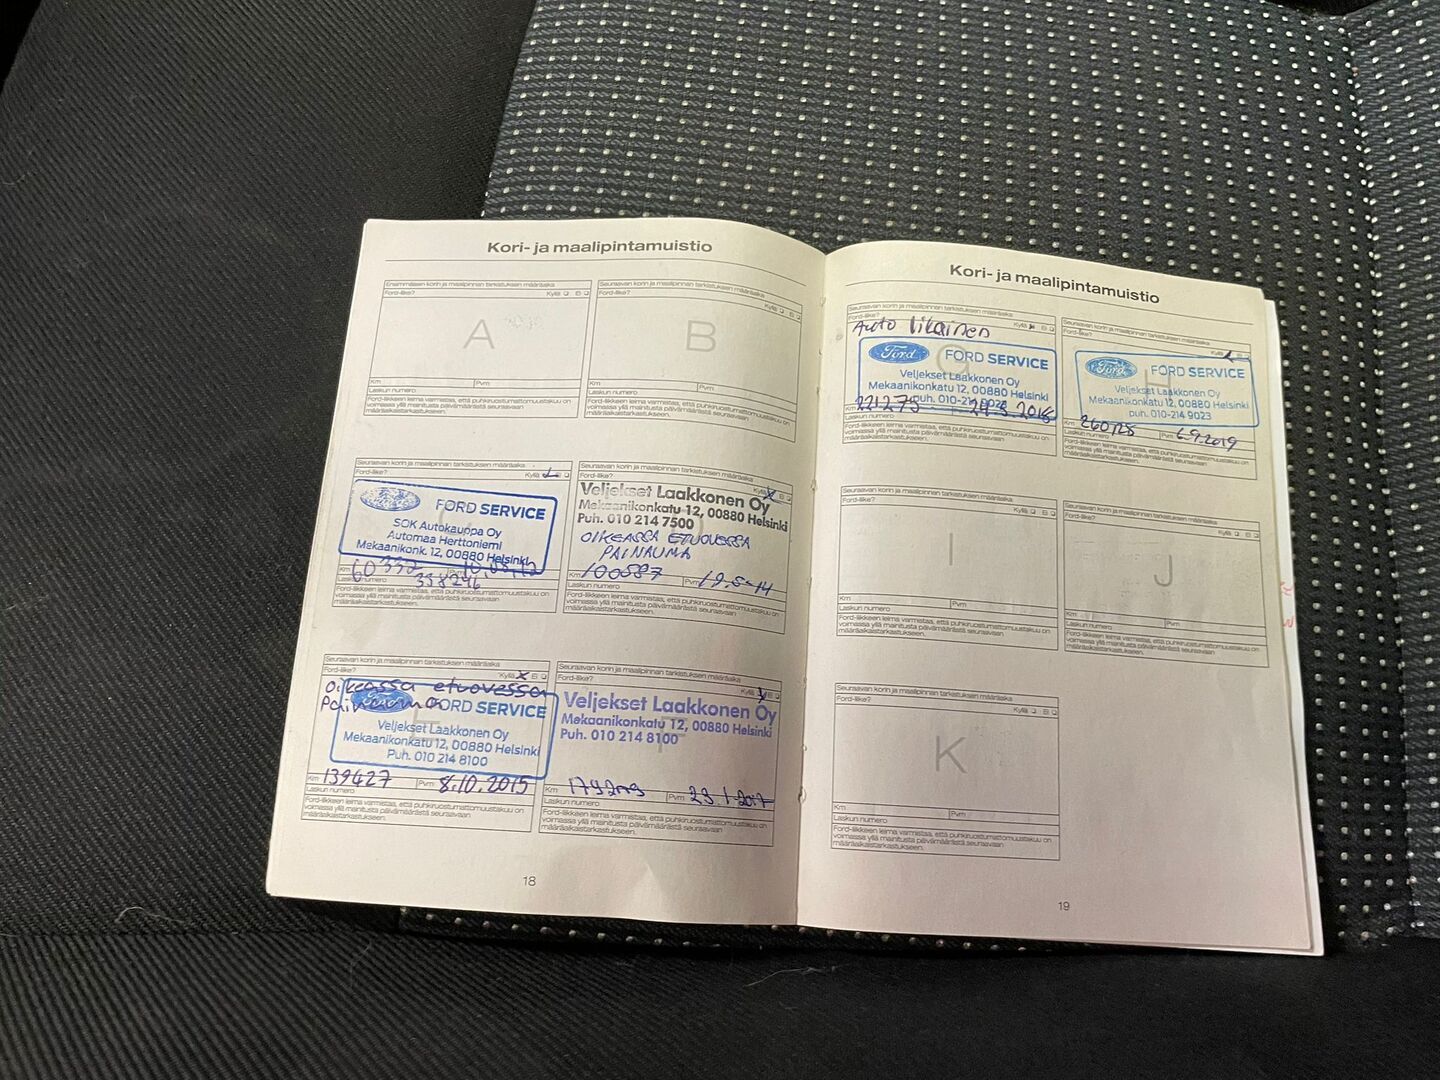 Kori- ja maalipintamuistio
Ensimmäisen korin ja maalipinnan tarkistuksen määräaika
Ford-liike? Kyllä Ei
A
Km Pvm
Laskun numero
Ford-liikkeen leima varmistaa, että puhkiruostumattomuustakuu on
voimassa yllä mainitusta päivämäärästä seuraavaan
määräaikaistarkastukseen.
Seuraavan korin ja maalipinnan tarkistuksen määräaika
Ford-liike? Kyllä Ei
B
Km Pvm
Laskun numero
Ford-liikkeen leima varmistaa, että puhkiruostumattomuustakuu on
voimassa yllä mainitusta päivämäärästä seuraavaan
määräaikaistarkastukseen.
Seuraavan korin ja maalipinnan tarkistuksen määräaika
Ford-liike? Kyllä Ei
FORD SERVICE
SOK Autokauppa Oy
Automaa Herttoniemi
Mekaanikonk. 12, 00880 Helsinki
Km 60332
Laskun numero 358246
Ford-liikkeen leima varmistaa, että puhkiruostumattomuustakuu on
voimassa yllä mainitusta päivämäärästä seuraavaan
määräaikaistarkastukseen.
Seuraavan korin ja maalipinnan tarkistuksen määräaika
Kyllä X Ei
Veljekset Laakkonen Oy
Mekaanikonkatu 12, 00880 Helsinki
Puh. 010 214 7500
OIKEASSA ETUOVESSA
PAINAUMA
Km 100587 Pvm 19.5-14
Laskun numero
Ford-liikkeen leima varmistaa, että puhkiruostumattomuustakuu on
voimassa yllä mainitusta päivämäärästä seuraavaan
määräaikaistarkastukseen.
Seuraavan korin ja maalipinnan tarkistuksen määräaika
Ford-liike? Kyllä X Ei
Oikeassa etuovessa
Painauma
Ford FORD SERVICE
Veljekset Laakkonen Oy
Mekaanikonkatu 12, 00880 Helsinki
Puh. 010 214 8100
Km 139427 Pvm 8.10.2015
Laskun numero
Ford-liikkeen leima varmistaa, että puhkiruostumattomuustakuu on
voimassa yllä mainitusta päivämäärästä seuraavaan
määräaikaistarkastukseen.
Seuraavan korin ja maalipinnan tarkistuksen määräaika
Ford-liike? Kyllä Ei
F
Veljekset Laakkonen Oy
Mekaanikonkatu 12, 00880 Helsinki
Puh. 010 214 8100
Km Pvm 23.1.2017
Laskun numero
Ford-liikkeen leima varmistaa, että puhkiruostumattomuustakuu on
voimassa yllä mainitusta päivämäärästä seuraavaan
määräaikaistarkastukseen.
18
Kori- ja maalipintamuistio
Seuraavan korin ja maalipinnan tarkistuksen määräaika
Ford-liike? Kyllä Ei
Auto likainen
G
Ford FORD SERVICE
Veljekset Laakkonen Oy
Mekaanikonkatu 12, 00880 Helsinki
puh. 010-214 9023
Km 221275
Laskun numero
Ford-liikkeen leima varmistaa, että puhkiruostumattomuustakuu on
voimassa yllä mainitusta päivämäärästä seuraavaan
määräaikaistarkastukseen.
Seuraavan korin ja maalipinnan tarkistuksen määräaika
Ford-liike? Kyllä Ei
H
Ford FORD SERVICE
Veljekset Laakkonen Oy
Mekaanikonkatu 12, 00880 Helsinki
puh. 010-214 9023
Km Pvm 6.9.2019
Laskun numero
Ford-liikkeen leima varmistaa, että puhkiruostumattomuustakuu on
voimassa yllä mainitusta päivämäärästä seuraavaan
määräaikaistarkastukseen.
Seuraavan korin ja maalipinnan tarkistuksen määräaika
Ford-liike? Kyllä Ei
I
Km Pvm
Laskun numero
Ford-liikkeen leima varmistaa, että puhkiruostumattomuustakuu on
voimassa yllä mainitusta päivämäärästä seuraavaan
määräaikaistarkastukseen.
Seuraavan korin ja maalipinnan tarkistuksen määräaika
Ford-liike? Kyllä Ei
J
Km Pvm
Laskun numero
Ford-liikkeen leima varmistaa, että puhkiruostumattomuustakuu on
voimassa yllä mainitusta päivämäärästä seuraavaan
määräaikaistarkastukseen.
Seuraavan korin ja maalipinnan tarkistuksen määräaika
Ford-liike? Kyllä Ei
K
Km Pvm
Laskun numero
Ford-liikkeen leima varmistaa, että puhkiruostumattomuustakuu on
voimassa yllä mainitusta päivämäärästä seuraavaan
määräaikaistarkastukseen.
19